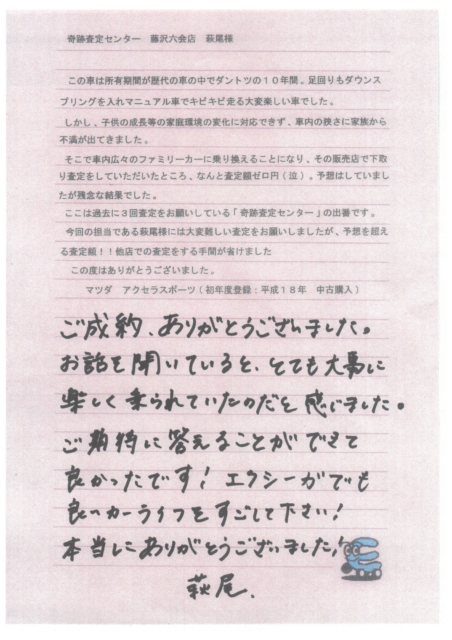 奇跡査定センター　藤沢六会店　萩尾様
この車は所有期間が歴代の車の中でダントツの１０年間。足回りもダウンス
プリングを入れマニュアル車でキビキビ走る大変楽しい車でした。
しかし、子供の成長等の家庭環境の変化に対応できず、車内の狭さに家族から
不満が出てきました。
そこで車内広々のファミリーカーに乗り換えることになり、その販売店で下取
り査定をしていただいたところ、なんと査定額ゼロ円（泣）。予想はしていまし
たが残念な結果でした。
ここは過去に３回査定をお願いしている「奇跡査定センター」の出番です。
今回の担当である萩尾様には大変難しい査定をお願いしましたが、予想を超え
る査定額！！他店での査定をする手間が省けました
この度はありがとうございました。
マツダ　アクセラスポーツ（初年度登録：平成１８年　中古購入）
ご成約、ありがとうございました。
お話を聞いていると、とても大事に
楽しく乗られていたのだと感じました。
ご期待に答えることができて
良かったです！エクシーガでも
良いカーライフをすごして下さい！
本当にありがとうございました！
萩尾.